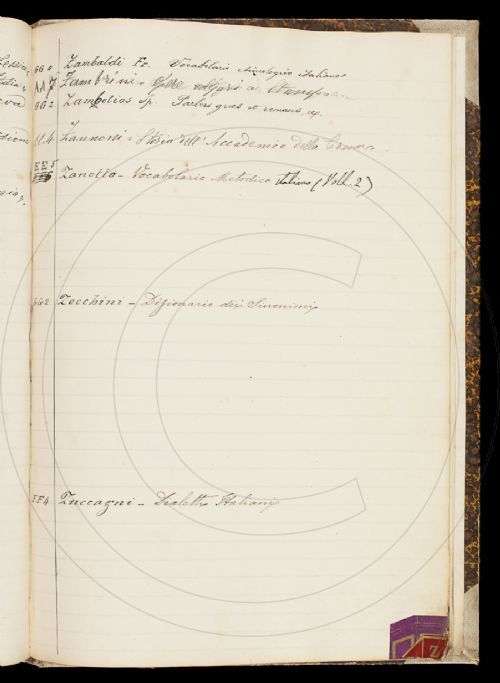 GG 4 Zambaldi Fr. Vocabolario etimologico italiano
AA 7 Zambrini - Opere volgari a Stampa
GG 2 Zambelios Sp. Parlers grecs et romans, etc.
Zannoni - Storia dell' Accademia della Crusca
EE 5 Zanotto - Vocabolario Metodico Italiano (Voll. 2)
GG2 Zecchini - Dizionario dei Sinonimi
FF4 Zuccagni - Dialetti Italiani
Z